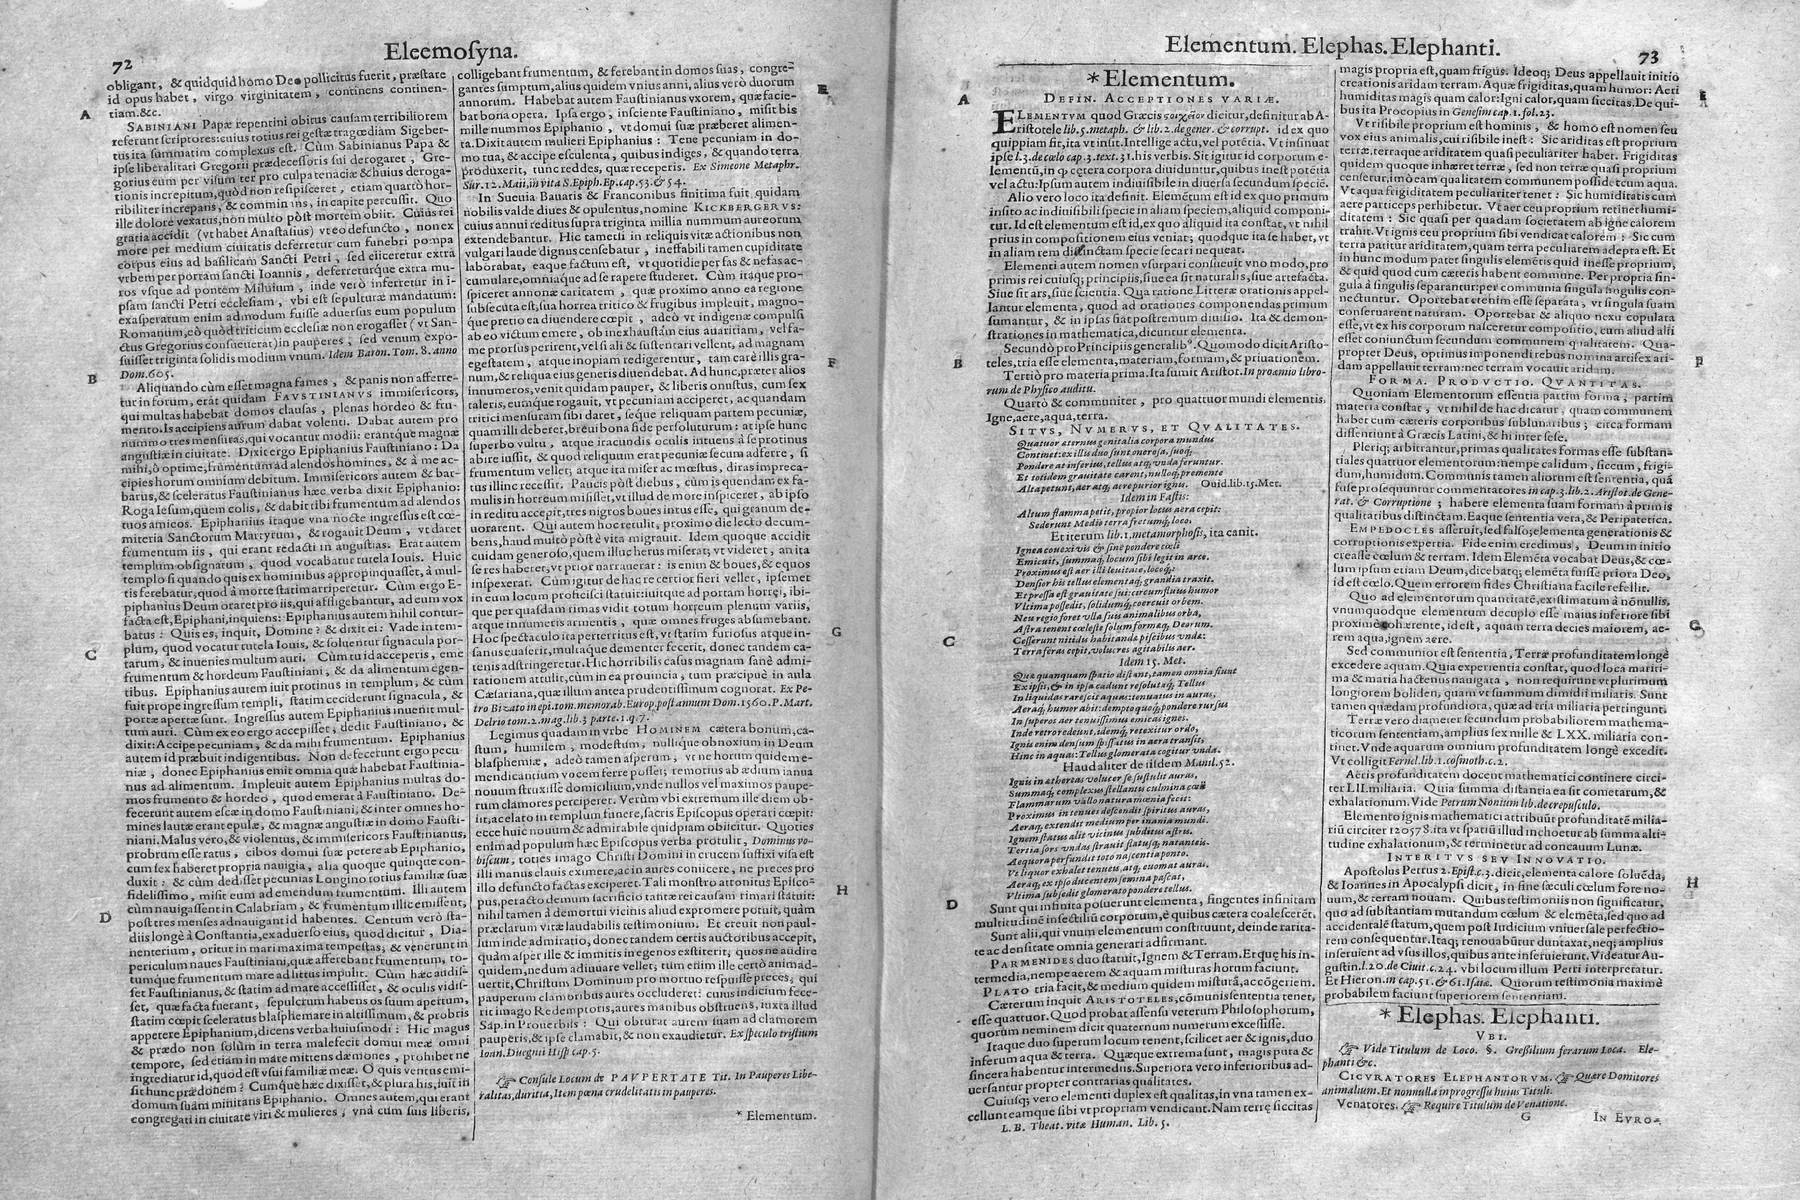 72
Eleemosyna.
obligant, & quidquid homo Deo pollicitus fuerit, præstare
id opus habet, virgo virginitatem, continens continen-
tiam. &c.
SABINIANI Papæ repentini obitus causam terribiliorem
referunt scriptores: cuius totius rei gestæ tragœdiam Sigeber-
tus ita summatim complexus est. Cùm Sabinianus Papa &
ipse liberalitati Gregorii prædecessoris sui derogaret, Gre-
gorius eum per visum ter pro culpa tenaciæ & huius deroga-
tionis increpitum, quòd non resipisceret, etiam quartò hor-
ribiliter increpans, & comminans, in capite percussit. Quo
ille dolore vexatus, non multo pòst mortem obiit. Cuius rei
gratia accidit (vt habet Anastasius) vt eo defuncto, non ex
more per medium ciuitatis deferretur cum funebri pompa
corpus eius ad basilicam Sancti Petri, sed eiiceretur extra
vrbem per portam sancti Ioannis, deferreturque extra mu-
ros vsque ad pontem Miluium, inde verò inferretur in i-
psam sancti Petri ecclesiam, vbi est sepulturæ mandatum:
exasperatum enim admodum fuisse aduersus eum populum
Romanum, eò quòd triticum ecclesiæ non erogasset (vt San-
ctus Gregorius consueuerat) in pauperes, sed venum expo-
suisset triginta solidis modium vnum. Idem Baron. Tom. 8. anno
Dom. 605.
Aliquando cùm esset magna fames, & panis non afferre-
tur in forum, erat quidam FAUSTINIANUS immisericors,
qui multas habebat domos clausas, plenas hordeo & fru-
mento. Is accipiens aurum dabat volenti. Dabat autem pro
nummo tres mensuras, qui vocantur modii: erantque magnæ
angustiæ in ciuitate. Dixit ergo Epiphanius Faustiniano: Da
mihi, ô optime, frumentum ad alendos homines, & à me ac-
cipies horum omnium debitum. Immisericors autem & bar-
barus, & sceleratus Faustinianus hæc verba dixit Epiphanio:
Roga Iesum, quem colis, & dabit tibi frumentum ad alendos
tuos amicos. Epiphanius itaque vna nocte ingressus est cœ-
miteria Sanctorum Martyrum, & rogauit Deum, vt daret
frumentum iis, qui erant redacti in angustias. Erat autem
templum obsignatum, quod vocabatur tutela Iouis. Huic
templo si quando quis ex hominibus appropinquasset, à mul-
tis ferebatur, quod à morte statim arriperetur. Cùm ergo E-
piphanius Deum oraret pro iis, qui affligebantur, ad eum vox
facta est, Epiphani, inquiens: Epiphanius autem nihil contur-
batus: Quis es, inquit, Domine? & dixit ei: Vade in tem-
plum, quod vocatur tutela Iouis, & soluentur signacula por-
tarum, & inuenies multum auri. Cùm tu id acceperis, eme
frumentum & hordeum Faustiniani, & da alimenta egen-
tibus. Epiphanius autem iuit protinus in templum, & cùm
fuit prope ingressum templi, statim ceciderunt signacula, &
portæ apertæ sunt. Ingressus autem Epiphanius inuenit mul-
tum auri. Cùm ex eo ergo accepisset, dedit Faustiniano, &
dixit: Accipe pecuniam, & da mihi frumentum. Epiphanius
autem id præbuit indigentibus. Non defecerunt ergo pecu-
niæ, donec Epiphanius emit omnia quæ habebat Faustinia-
nus ad alimentum. Impleuit autem Epiphanius multas do-
mos frumento & hordeo, quod emerat à Faustiniano. De-
fecerunt autem escæ in domo Faustiniani, & inter omnes ho-
mines lautæ erant epulæ, & magnæ angustiæ in domo Fausti-
niani. Malus vero, & violentus, & immisericors Faustinianus,
probrum esse ratus, cibos domui suæ petere ab Epiphanio,
cum sex haberet propria nauigia, alia quoque quinque con-
duxit: & cùm dedisset pecunias Longino totius familiæ suæ
fidelissimo, misit eum ad emendum frumentum. Illi autem
cùm nauigassent in Calabriam, & frumentum illic emissent,
post tres menses adnauigant id habentes. Centum verò sta-
diis longè à Constantia, ex aduerso eius, quod dicitur, Dia-
nenterium, oritur in mari maxima tempestas; & venerunt in
periculum naues Faustiniani, quæ afferebant frumentum, to-
tumque frumentum mare ad littus impulit. Cùm hæc audis-
set Faustinianus, & statim ad mare accessisset, & oculis vidis-
set, quæ facta fuerant, sepulcrum habens os suum apertum,
statim cœpit sceleratus blasphemare in altissimum, & probris
appetere Epiphanium, dicens verba huiusmodi: Hic magus
& prædo non solùm in terra malefecit domui meæ omni
tempore, sed etiam in mare mittens dæmones, prohibet ne
ingrediatur id, quod est vsui familiæ meæ. O quis ventus emi-
sit hunc prædonem? Cumque hæc dixisset, & plura his, iuit in
domum suam minitans Epiphanio. Omnes autem, qui erant
congregati in ciuitate viri & mulieres, vnà cum suis liberis,
A
B
C
D
colligebant frumentum, & ferebant in domos suas, congre-
gantes sumptum, alius quidem vnius anni, alius verò duorum
annorum. Habebat autem Faustinianus vxorem, quæ facie-
bat bona opera. Ipsa ergo, insciente Faustiniano, misit bis
mille nummos Epiphanio, vt domui suæ præberet alimen-
ta. Dixit autem mulieri Epiphanius: Tene pecuniam in do-
mo tua, & accipe esculenta, quibus indiges, & quando terra
produxerit, tunc reddes, quæ receperis. Ex Simeone Metaphr.
Sur. 12. Maii, in vita S. Epiph. Ep. cap. 53. & 54.
In Sueuia Bauaris & Franconibus finitima fuit quidam
nobilis valde diues & opulentus, nomine KICKBERGERVS:
cuius annui reditus supra triginta millia nummum aureorum
extendebantur. Hic tametsi in reliquis vitæ actionibus non
vulgari laude dignus censebatur, ineffabili tamen cupiditate
laborabat, eaque factum est, vt quotidie per fas & nefas ac-
cumulare, omniaque ad se rapere studeret. Cùm itaque pro-
spiceret annonæ caritatem, quæ proximo anno ea regione
subsecuta est, sua horrea tritico & frugibus impleuit, magno-
que pretio ea diuendere cœpit, adeò vt indigenæ compulsi
ab eo victum emere, ob inexhaustam eius auaritiam, vel fa-
me prorsus perirent, vel si ali & sustentari vellent, ad magnam
egestatem, atque inopiam redigerentur, tam carè illis gra-
num, & reliqua eius generis diuendebat. Ad hunc, præter alios
innumeros, venit quidam pauper, & liberis onustus, cum sex
taleris, eumque rogauit, vt pecuniam acciperet, ac quandam
tritici mensuram sibi daret, seque reliquam partem pecuniæ,
quam illi deberet, breui bona fide persoluturum: at ipse hunc
superbo vultu, atque iracundis oculis intuens à se protinus
abire iussit, & quod reliquum erat pecuniæ secum adferre, si
frumentum vellet; atque ita miser ac mœstus, diras impreca-
tus illinc recessit. Paucis pòst diebus, cùm is quendam ex fa-
mulis in horreum misisset, vt illud de more inspiceret, ab ipso
in reditu accepit, tres nigros boues intus esse, qui granum de-
uorarent. Qui autem hoc retulit, proximo die lecto decum-
bens, haud multò pòst è vita migrauit. Idem quoque accidit
cuidam generoso, quem illuc herus miserat; vt videret, an ita
se res haberet, vt prior narrauerat: is enim & boues, & equos
inspexerat. Cùm igitur de hac re certior fieri vellet, ipsemet
in eum locum proficisci statuit: iuitque ad portam horrei, ibi-
que per quasdam rimas vidit totum horreum plenum variis,
atque innumeris armentis, quæ omnes fruges absumebant.
Hoc spectaculo ita perterritus est, vt statim furiosus atque in-
sanus euaserit, multaque dementer fecerit, donec tandem ca-
tenis adstringeretur. Hic horribilis casus magnam sanè admi-
rationem attulit, cùm in ea prouincia, tum præcipuè in aula
Cæsariana, quæ illum antea prudentissimum cognorat. Ex Pe-
tro Bizato in epi. tom. memorab. Europ. post annum Dom. 1560. P. Mart.
Delrio tom. 2. mag. lib. 3 parte. 1. q. 7.
Legimus quadam in vrbe HOMINEM cætera bonum, ca-
stum, humilem, modestum, nullique obnoxium in Deum
blasphemiæ, adeò tamen asperum, vt ne horum quidem e-
mendicantium vocem ferre posset; remotius ab ædium ianua
nouum struxisse domicilium, vnde nullos vel maximos paupe-
rum clamores perciperet. Verùm vbi extremum ille diem ob-
iit, ac elato in templum funere, sacris Episcopus operari cœpit:
ecce huic nouum & admirabile quidpiam obiicitur. Quoties
enim ad populum hæc Episcopus verba protulit, Dominus vo-
biscum, toties imago Christi Domini in crucem suffixi visa est
illi manus clauis eximere, ac in aures conicere, ne preces pro
illo defuncto factas exciperet. Tali monstro attonitus Episco-
pus, peracto demum sacrificio tantæ rei causam rimari statuit:
nihil tamen à demortui vicinis aliud expromere potuit, quàm
præclarum vitæ laudabilis testimonium. Et creuit non paul-
lum inde admiratio, donec tandem certis auctoribus accepit,
quàm asper ille & immitis in egenos exstiterit, quos ne audire
quidem, nedum adiuuare vellet; tum etiam ille certò animad-
uertit, Christum Dominum pro mortuo respuisse preces; qui
pauperum clamoribus aures occluderet: cuius indicium fece-
rit imago Redemptoris, aures manibus obstruens, iuxta illud
Sap. in Prouerbiis: Qui obturat autem suam ad clamorem
pauperis, & ipse clamabit, & non exaudietur. Ex speculo tristium
Ioan. Duegnii Hisp cap. 5.
☞ Consule Locum de PAUPERTATE Tit. In Pauperes Libe-
ralitas, duritia, Item pœna crudelitatis in pauperes.
* Elementum.
E
F
G
H
Elementum. Elephas. Elephanti.
73
* Elementum.
DEFIN. ACCEPTIONES VARIÆ.
ELEMENTVM quod Græcis στοιχεῖον dicitur, definitur ab A-
ristotele lib. 5. metaph. & lib. 2. de gener. & corrupt. id ex quo
quippiam fit, ita vt insit. Intellige actu, vel potētia. Vt insinuat
ipse l. 3. de cœlo cap. 3. text. 31. his verbis. Sit igitur id corporum e-
lementū, in qƺ cętera corpora diuiduntur, quibus inest potētia
vel actu: Ipsum autem indiuisibile in diuersa secundum speciē.
Alio vero loco ita definit. Elemētum est id ex quo primum
insito ac indiuisibili specie in aliam speciem, aliquid componi-
tur. Id est elementum est id, ex quo aliquid ita constat, vt nihil
prius in compositionem eius veniat; quodque ita se habet, vt
in aliam rem distinctam specie secari nequeat.
Elementi autem nomen vsurpari consueuit vno modo, pro
primis rei cuiusq; principiis, siue ea sit naturalis, siue artefacta.
Siue sit ars, siue scientia. Qua ratione Litteræ orationis appel-
lantur elementa, quod ad orationes componendas primum
sumantur, & in ipsas fiat postremum diuisio. Ita & demon-
strationes in mathematica, dicuntur elementa.
Secundò pro Principiis generalib⁹. Quomodo dicit Aristo-
teles, tria esse elementa, materiam, formam, & priuationem.
Tertiò pro materia prima. Ita sumit Aristot. In proœmio libro-
rum de Physico auditu.
Quartò & communiter, pro quattuor mundi elementis.
Igne, aere, aqua, terra.
SITVS, NVMERVS, ET QVALITATES.
Quatuor æternus genitalia corpora mundus
Continet: ex illis duo sunt onerosa, suoq́;
Pondere at inferius, tellus atq́; vnda feruntur.
Et totidem grauitate carent, nulloq́; premente
Alta petunt, aer atq́; aere purior ignis. Ouid. lib. 15. Met.
Idem in Fastis:
Altum flamma petit, propior locus aera cepit:
Sederunt Medio terra fretumq́; loco.
Et iterum lib. 1. metamorphosis, ita canit.
Ignea conuexi vis & sine pondere cœli
Emicuit, summaq́; locum sibi legit in arce.
Proximus est aer illi leuitate, locoq́;:
Densior his tellus elementaq́; grandia traxit.
Et pressa est grauitate sui: circumfluus humor
Vltima possedit, solidumq́; coercuit orbem.
Neu regio foret vlla suis animalibus orba,
Astra tenent cœleste solum formæq́; Deorum.
Cesserunt nitidis habitandæ piscibus vndæ:
Terra feras cepit, volucres agitabilis aer.
Idem 15. Met.
Quæ quanquam spatio distant, tamen omnia fiunt
Ex ipsis, & in ipsa cadunt resolutaq́; Tellus
In liquidas rarescit aquas: tenuatus in auras,
Aeraq́; humor abit: demptoquoq́; pondere rursus
In superos aer tenuissimus emicat ignes.
Inde retro redeunt, idemq́; retexitur ordo,
Ignis enim densum spissatus in aera transit,
Hinc in aquas: Tellus glomerata cogitur vnda.
Haud aliter de iisdem Manil. 52.
Ignis in æthereas volucer se sustulit auras,
Summaq́; complexus stellantis culmina cœli
Flammarum vallo naturæ mœnia fecit:
Proximus in tenues descendit spiritus auras,
Aeraq́; extendit medium per inania mundi.
Ignem flatus alit vicinus subditus astris.
Tertia sors vndas strauit fluctusq́; natanteis.
Aequora perfundit toto nascentia ponto.
Vt liquor exhalet tenueis, atq́; euomat auras,
Aeraq́; ex ipso ducentem semina pascat,
Vltima subsedit glomerato pondere tellus.
Sunt qui infinita posuerunt elementa, fingentes infinitam
multitudinē insectiliū corporum, è quibus cætera coalescerēt,
Sunt alii, qui vnum elementum constituunt, deinde rarita-
te ac densitate omnia generari adfirmant.
PARMENIDES duo statuit, Ignem & Terram. Et quę his in-
termedia, nempe aerem & aquam misturas horum faciunt.
PLATO tria facit, & medium quidem misturā, accōgeriem.
Cæterum inquit ARISTOTELES, cōmunis sententia tenet,
esse quattuor. Quod probat assensu veterum Philosophorum,
quorum neminem dicit quaternum numerum excessisse.
Itaque duo superum locum tenent, scilicet aer & ignis, duo
inferum aqua & terra. Quæque extrema sunt, magis pura &
sincera habentur intermediis. Superiora vero inferioribus ad-
uersantur propter contrarias qualitates.
Cuiusq; vero elementi duplex est qualitas, in vna tamen ex-
cellunt eamque sibi vt propriam vendicant. Nam terrę siccitas
L. B. Theat. vitæ Human. Lib. 5.
A
B
C
D
magis propria est, quam frigus. Ideoq; Deus appellauit initio
creationis aridam terram. Aquæ frigiditas, quam humor: Aeri
humiditas magis quam calor: Igni calor, quam siccitas. De qui-
bus ita Procopius in Genesim cap. 1. fol. 23.
Vt risibile proprium est hominis, & homo est nomen seu
vox eius animalis, cui risibile inest: Sic ariditas est proprium
terræ, terraque ariditatem quasi peculiariter habet. Frigiditas
quidem quoque inhæret terræ, sed non terræ quasi proprium
censetur, imò eam qualitatem communem possidet cum aqua.
Vt aqua frigiditatem peculiariter tenet: Sic humiditatis cum
aere particeps perhibetur. Vt aer ceu proprium retinet humi-
ditatem: Sic quasi per quadam societatem ab igne calorem
trahit. Vt ignis ceu proprium sibi vendicat calorem: Sic cum
terra patitur ariditatem, quam terra peculiariter adepta est. Et
in hunc modum patet singulis elemētis quid inesse proprium,
& quid quod cum cæteris habent commune. Per propria sin-
gula à singulis separantur: per communia singula singulis con-
nectuntur. Oportebat etenim esse separata, vt singula suam
conseruarent naturam. Oportebat & aliquo nexu copulata
esse, vt ex his corporum nasceretur compositio, cum aliud alii
esset coniunctum secundum communem qualitatem. Qua-
propter Deus, optimus imponendi rebus nomina artifex ari-
dam appellauit terram: nec terram vocauit aridam.
FORMA. PRODVCTIO. QVANTITAS.
Quoniam Elementorum essentia partim forma, partim
materia constat, vt nihil de hac dicatur, quam communem
habet cum cæteris corporibus sublunaribus; circa formam
dissentiunt à Græcis Latini, & hi inter sese.
Pleriq; arbitrantur, primas qualitates formas esse substan-
tiales quattuor elementorum: nempe calidum, siccum, frigi-
dum, humidum. Communis tamen aliorum est sententia, quā
fuse prosequuntur commentatores in cap. 3. lib. 2. Aristot. de Gene-
rat. & Corruptione; habere elementa suam formam à primis
qualitatibus distinctam. Eaque sententia vera, & Peripatetica.
EMPEDOCLES asseruit, sed falsò; elementa generationis &
corruptionis expertia. Fide enim eredimus, Deum in initio
creasse cœlum & terram. Idem Elemēta vocabat Deus, & cœ-
lum ipsum etiam Deum, dicebatq; elemēta fuisse priora Deo,
id est cœlo. Quem errorem fides Christiana facile refellit.
Quo ad elementorum quantitatē, existimatum à nōnullis,
vnumquodque elementum decuplo esse maius inferiore sibi
proximè cohærente, id est, aquam terra decies maiorem, ae-
rem aqua, ignem aere.
Sed communior est sententia, Terræ profunditatem longè
excedere aquam. Quia experientia constat, quod loca mariti-
ma & maria hactenus nauigata, non requirunt vt plurimum
longiorem boliden, quam vt summum dimidii miliaris. Sunt
tamen quædam profundiora, quæ ad tria miliaria pertingunt.
Terræ vero diameter secundum probabiliorem mathema-
ticorum sententiam, amplius sex mille & LXX. miliaria con-
tinet. Vnde aquarum omnium profunditatem longè excedit.
Vt colligit Fernel. lib. 1. cosmoth. c. 2.
Aeris profunditatem docent mathematici continere circi-
ter LII. miliaria. Quia summa distantia ea sit cometarum, &
exhalationum. Vide Petrum Nonium lib. de crepusculo.
Elemento ignis mathematici attribuūt profunditatē milia-
riū circiter 120578. ita vt spatiū illud inchoetur ab summa alti-
tudine exhalationum, & terminetur ad concauum Lunæ.
INTERITVS SEV INNOVATIO.
Apostolus Petrus 2. Epist. c. 3. dicit, elementa calore soluēda,
& Ioannes in Apocalypsi dicit, in fine sæculi cœlum fore no-
uum, & terram nouam. Quibus testimoniis non significatur,
quo ad substantiam mutandum cœlum & elemēta, sed quo ad
accidentalē statum, quem post Iudicium vniuersale perfectio-
rem consequentur. Itaq; renouabūtur duntaxat, neq; amplius
inseruient ad vsus illos, quibus ante inseruierunt. Videatur Au-
gustin. l. 20. de Ciuit. c. 24. vbi locum illum Petri interpretatur.
Et Hieron. in cap. 51. & 61. Isaiæ. Quorum testimonia maximè
probabilem faciunt superiorem sententiam.
* Elephas. Elephanti.
VBI.
☞ Vide Titulum de Loco. §. Gressilium ferarum Loca. Ele-
phanti &c.
CICVRATORES ELEPHANTORVM. ☞ Quære Domitores
animalium. Et nonnulla in progressu huius Tituli.
Venatores. ☞ Require Titulum de Venatione.
G
IN EVRO-
E
F
G
H